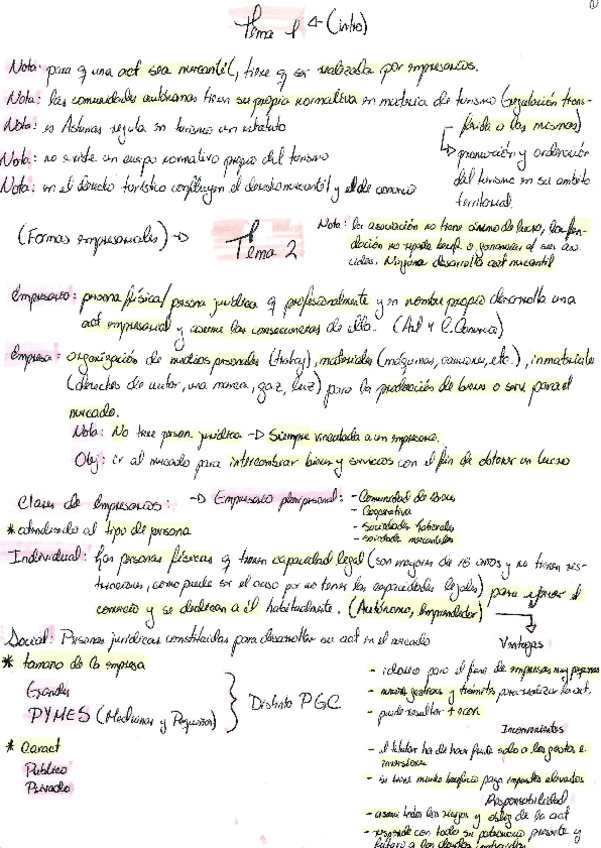 Tema 1 ← (intro)
Nota: para q una act sea mercantil, tiene q ser realizada por empresarios.
Nota: las comunidades autónomas tienen su propia normativa en materia de turismo (regulación trans-
ferida a las mismas)
Nota: es Asturias regula en turismo un estatuto
promoción y ordenación
Nota: no existe un cuerpo normativo propio del turismo
del turismo en su ámbito
Nota: en el derecho turístico confluyen el derecho mercantil y el de consumo
territorial.
(Formas empresariales) → Tema 2
Nota: la asociación no tiene ánimo de lucro, la fun-
dación no reparte benef. o ganancias al ser so-
cidades. Ninguna desarrolla act mercantil
Empresario: persona física/persona jurídica q profesionalmente y en nombre propio desarrolla una
act empresarial y asume las consecuencias de ella. (Art 1 C. Comercio)
Empresa: organización de medios personales (trabaj), materiales (máquinas, camiones, etc.), inmateriales
(derechos de autor, una marca, gaz, luz) para la producción de bienes o serv para el
mercado.
Nota: No tiene person. jurídica → Siempre vinculada a un empresario.
Obj: ir al mercado para intercambiar bienes y servicios con el fin de obtener un lucro
Clases de empresarios: → Empresario pluripersonal: - Comunidad de bienes
- Cooperativa
* atendiendo al tipo de persona
- Sociedades laborales
- sociedades mercantiles
Individual: Las personas físicas q tienen capacidad legal (son mayores de 18 años y no tienen res-
tricciones, como puede ser el caso por no tener las capacidades legales) para ejercer el
comercio y se dedican a él habitualmente. (Autónomo, Emprendedor)
Social: Personas jurídicas constituidas para desarrollar su act en el mercado
Ventajas
* tamaño de la empresa
- idóneo para el func. de empresas muy pequeñas
Grandes
- menos gestiones y trámites para realizar la act.
PYMES (Medianas y Pequeñas)
Distinto PGC
- puede resultar + econ
Inconvenientes
* Caract
- el titular ha de hacer frente solo a los gastos e
inversiones
Público
- si tiene mucho beneficio paga impuestos elevados
Privado
Responsabilidad
- asume todos los riesgos y oblig de la act
- responde con todo su patrimonio presente y
futuro a las deudas